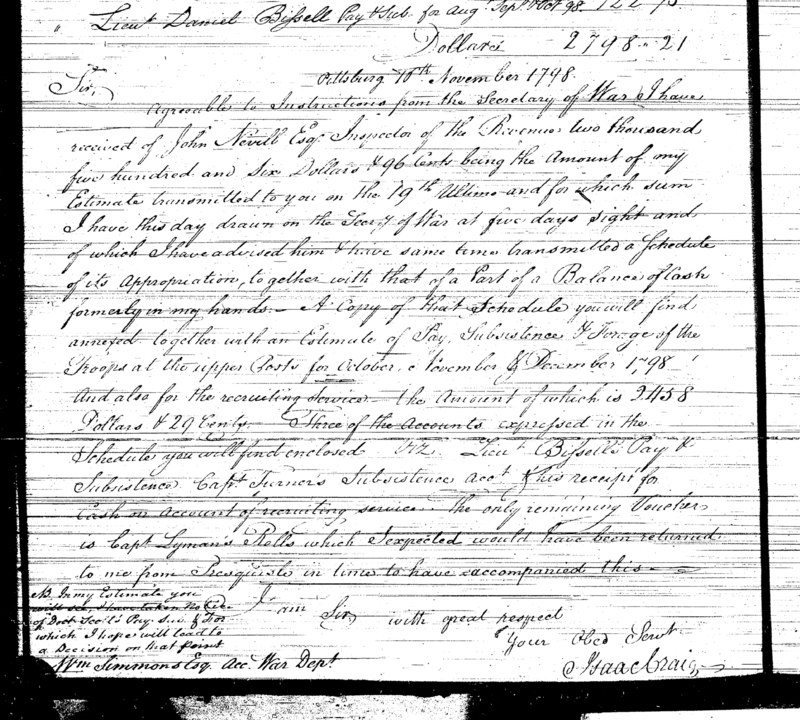 " Lieut Daniel Bissell Pay & Sub. for Aug. Sept. & Oct 98 122 75
Dollars 2798.. 21
Pittsburg 10th November 1798.
Sir,
Agreable to Instructions from the Secretary of War I have
received of John Nevill Esqr Inspector of the Revenue two thousand
five hundred and Six Dollars & 96 Cents being the Amount of my
Estimate transmitted to you on the 19th Ultimo and for which sum
I have this day drawn on the Secry of War at five days sight and
of which I have advised him & have same time transmitted a Schedule
of its Appropriation, together with that of a Part of a Balance of Cash
formerly in my hands. - A Copy of that Schedule you will find
annexed together with an Estimate of Pay, Subsistence & Forage of the
Troops at the upper Posts for October, November & December 1798
And also for the recruiting service - the Amount of which is 2458
Dollars & 29 Cents. Three of the Accounts expressed in the
Schedule you will find enclosed Viz. Lieut Bissell's Pay &
Subsistence. Capt Turner's Subsistence acct & his receipt for
Cash on Account of recruiting service. The only remaining Voucher
is Capt Lyman's Rolls which I expected would have been returned
to me from Presquisle in time to have accompanied this -
I am Sir with great respect
Your Obed Servt
Isaac Craig
NB. In my Estimate you
will see, I have taken No
of Doct Scot's Pay. Sub. & For
which I hope will lead to
a Decision on that point
Wm Simmons Esq. Acc. War Dept